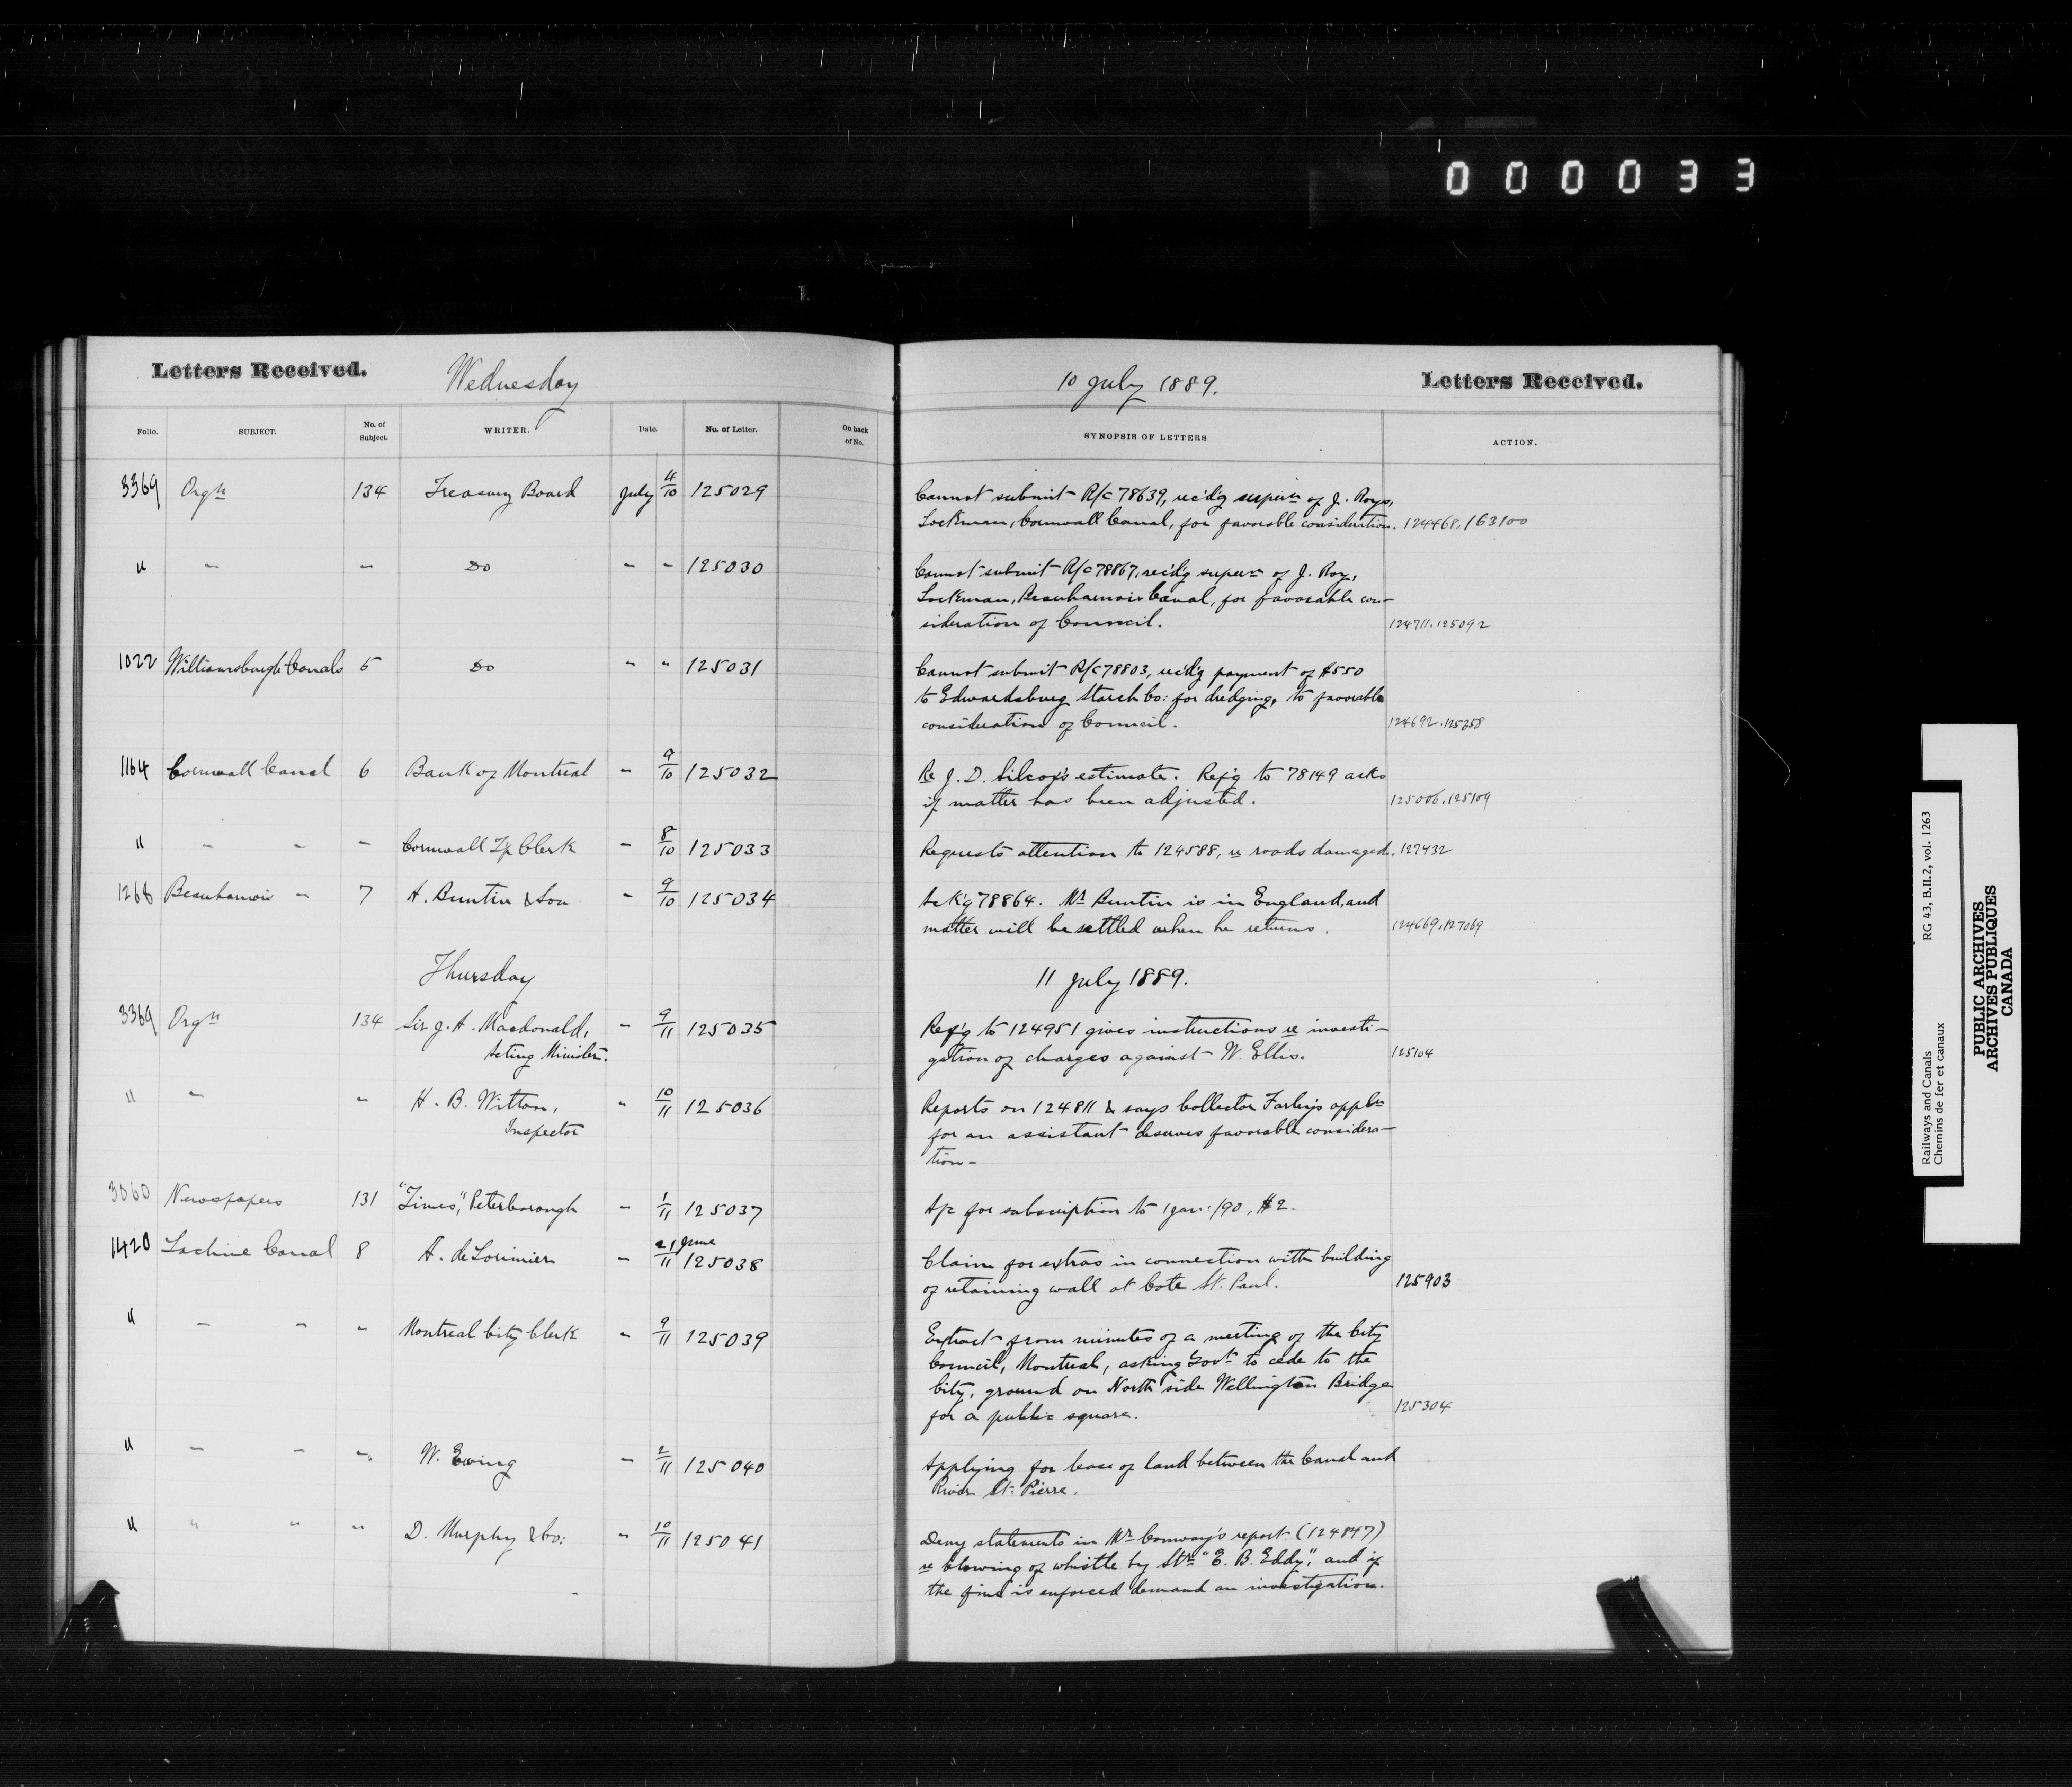 000033
Letters Received. Wednesday 10 July 1889. Letters Received.
Folio. SUBJECT. No. of Subject. WRITER. Date. No. of Letter. On back of No. SYNOPSIS OF LETTERS ACTION.
3369 Orgn 134 Treasury Board July 4/10 125029 Cannot submit R/C 78639, rec'd'g superon of J. Roys,
Lockman, Cornwall Canal, for favorable consideration. 124468, 163100
" - - Do - - 125030 Cannot submit R/C 78867, rec'd'g superon of J. Roy,
Lockman, Beauharnois Canal, for favorable con-
sideration of Council. 124711. 125092
1022 Williamsburgh Canals 5 Do " " 125031 Cannot submit R/C 78803, rec'd'g payment of $550
to Edwardsburg Starch Co: for dredging, to favorable
consideration of Council. 124692. 125258
1164 Cornwall Canal 6 Bank of Montreal - 9/10 125032 Re J. D. Silcox's estimate. Ref'g to 78149 asks
if matter has been adjusted. 125006. 125109
" - - - Cornwall Tp Clerk - 8/10 125033 Requests attention to 124588, re roads damaged. 127432
1268 Beauharnois - 7 A. Buntin & Son - 9/10 125034 Ack'g 78864. Mr Buntin is in England, and
matter will be settled when he returns. 124669. 127069
Thursday 11 July 1889.
3369 Orgn 134 Sir J. A. Macdonald, - 9/11 125035 Ref'g to 124951 gives instructions re investi-
Acting Minister. gation of charges against W. Ellis. 125104
" - " H. B. Witton, " 10/11 125036 Reports on 124811 & says Collector Farley's appln
Inspector for an assistant deserves favorable considera-
tion-
3060 Newspapers 131 "Times", Peterborough - 1/11 125037 A/c for subscription to 1 Jan: /90, $2.
1420 Lachine Canal 8 A. de Lorimier - 21 June/11 125038 Claim for extras in connection with building
of retaining wall at Cote St. Paul. 125903
" - - - Montreal City Clerk " 9/11 125039 Extract from minutes of a meeting of the City
Council, Montreal, asking Govt to cede to the
City, ground on North side Wellington Bridge
for a public square. 125304
" - - - W. Ewing - 2/11 125040 Applying for lease of land between the Canal and
River St. Pierre.
" " " " D. Murphy & Co: " 10/11 125041 Deny statements in Mr Conway's report (124847)
re blowing of whistle by Str "E. B. Eddy", and if
the fine is enforced demand an investigation.
Railways and Canals RG 43, B.II.2, vol. 1263
Chemins de fer et canaux
PUBLIC ARCHIVES
ARCHIVES PUBLIQUES
CANADA